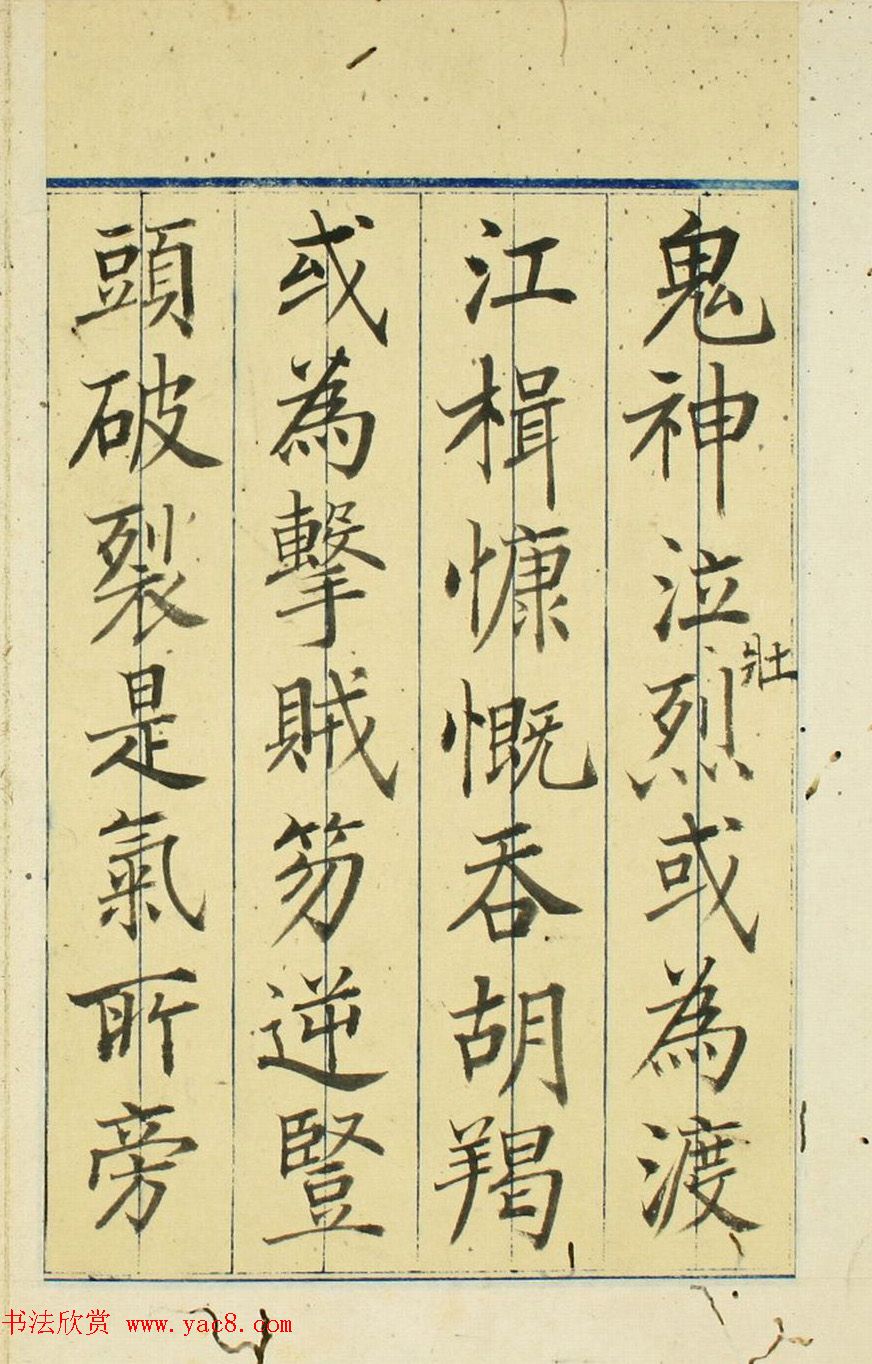 鬼神泣壯烈或為渡
江楫慷慨吞胡羯
或為擊賊笏逆豎
頭破裂是氣所旁
书法欣赏 www.yac8.com